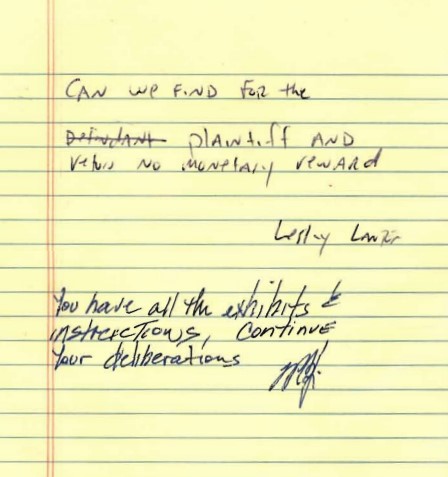 CAN WE FIND FOR the
Defendant plaintiff AND
NO MONETARY REWARD
Lesley
You have all the exhibits &
instructions, Continue
Your deliberations